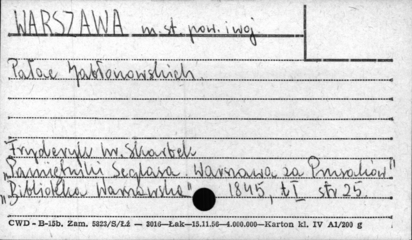 WARSZAWA m. st. pow. i woj
Pałac Jabłonowskich.
Fryderyk hr. Skarbek
"Pamiętniki Seglasa. Warszawa za Prusaków"
"Biblioteka Warszawska" 1845, t I str 25
CWD - B-15b, Zam. 5323/S/Łź — 3016—Łak—15.11.56—4.000.000—Karton kl. IV A1/200 g